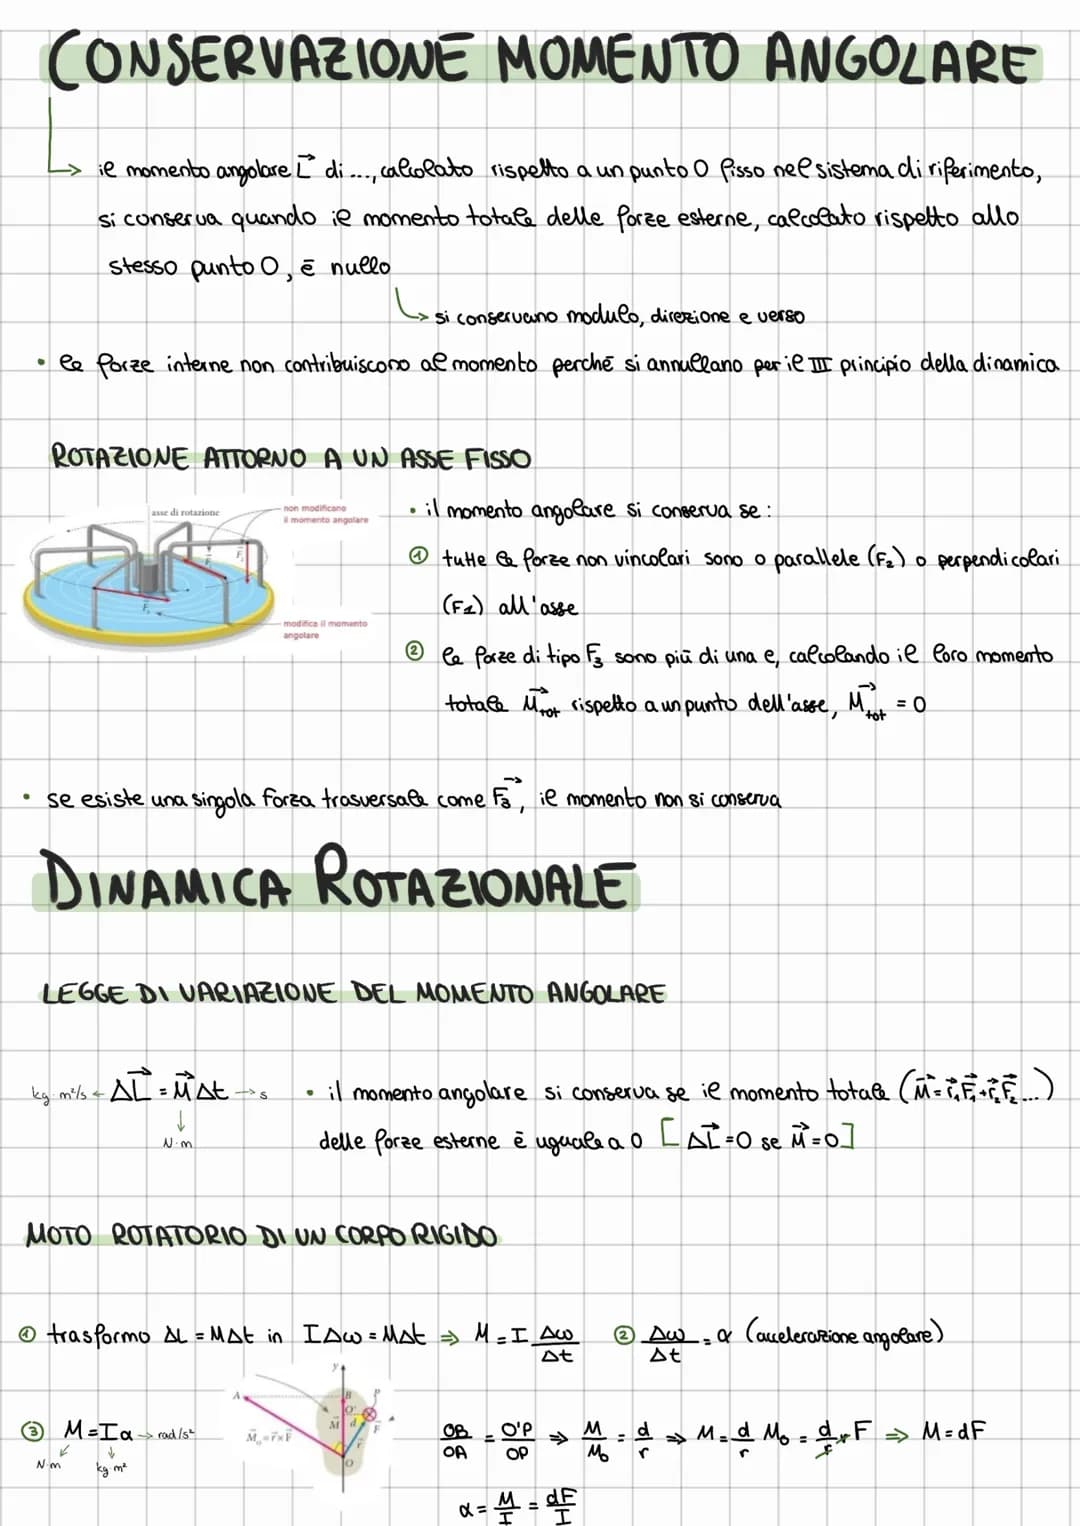 CONSERVAZIONE MOMENTO ANGOLARE
il momento angolare L⃗ di ..., calcolato rispetto a un punto O fisso nel sistema di riferimento,
si conserva quando il momento totale delle forze esterne, calcolato rispetto allo
stesso punto O, è nullo
si conservano modulo, direzione e verso
• le forze interne non contribuiscono al momento perché si annullano per il III principio della dinamica
ROTAZIONE ATTORNO A UN ASSE FISSO
asse di rotazione
non modificano
il momento angolare
modifica il momento
angolare
• il momento angolare si conserva se:
① tutte le forze non vincolari sono o parallele (F₂) o perpendicolari
(F₁) all'asse
② le forze di tipo F₃ sono più di una e, calcolando il loro momento
totale M⃗tot rispetto a un punto dell'asse, M⃗tot = 0
• se esiste una singola forza trasversale come F⃗₃, il momento non si conserva
DINAMICA ROTAZIONALE
LEGGE DI VARIAZIONE DEL MOMENTO ANGOLARE
kg·m²/s ← ΔL⃗ = M⃗Δt → s
↓
N·m
• il momento angolare si conserva se il momento totale (M⃗ = r⃗₁F⃗₁+r⃗₂F⃗₂...)
delle forze esterne è uguale a 0 [ΔL⃗=0 se M⃗=0]
MOTO ROTATORIO DI UN CORPO RIGIDO
① trasformo ΔL = MΔt in IΔω = MΔt ⇒ M = I Δω/Δt
② Δω/Δt = α (accelerazione angolare)
③ M = Iα → rad/s²
N·m kg m²
y
A B P
O'
M d F
M⃗₀ = r⃗×F⃗
r
O
OB/OA = O'P/OP ⇒ M/M₀ = d/r ⇒ M = d/r M₀ = d/r rF ⇒ M = dF
α = M/I = dF/I